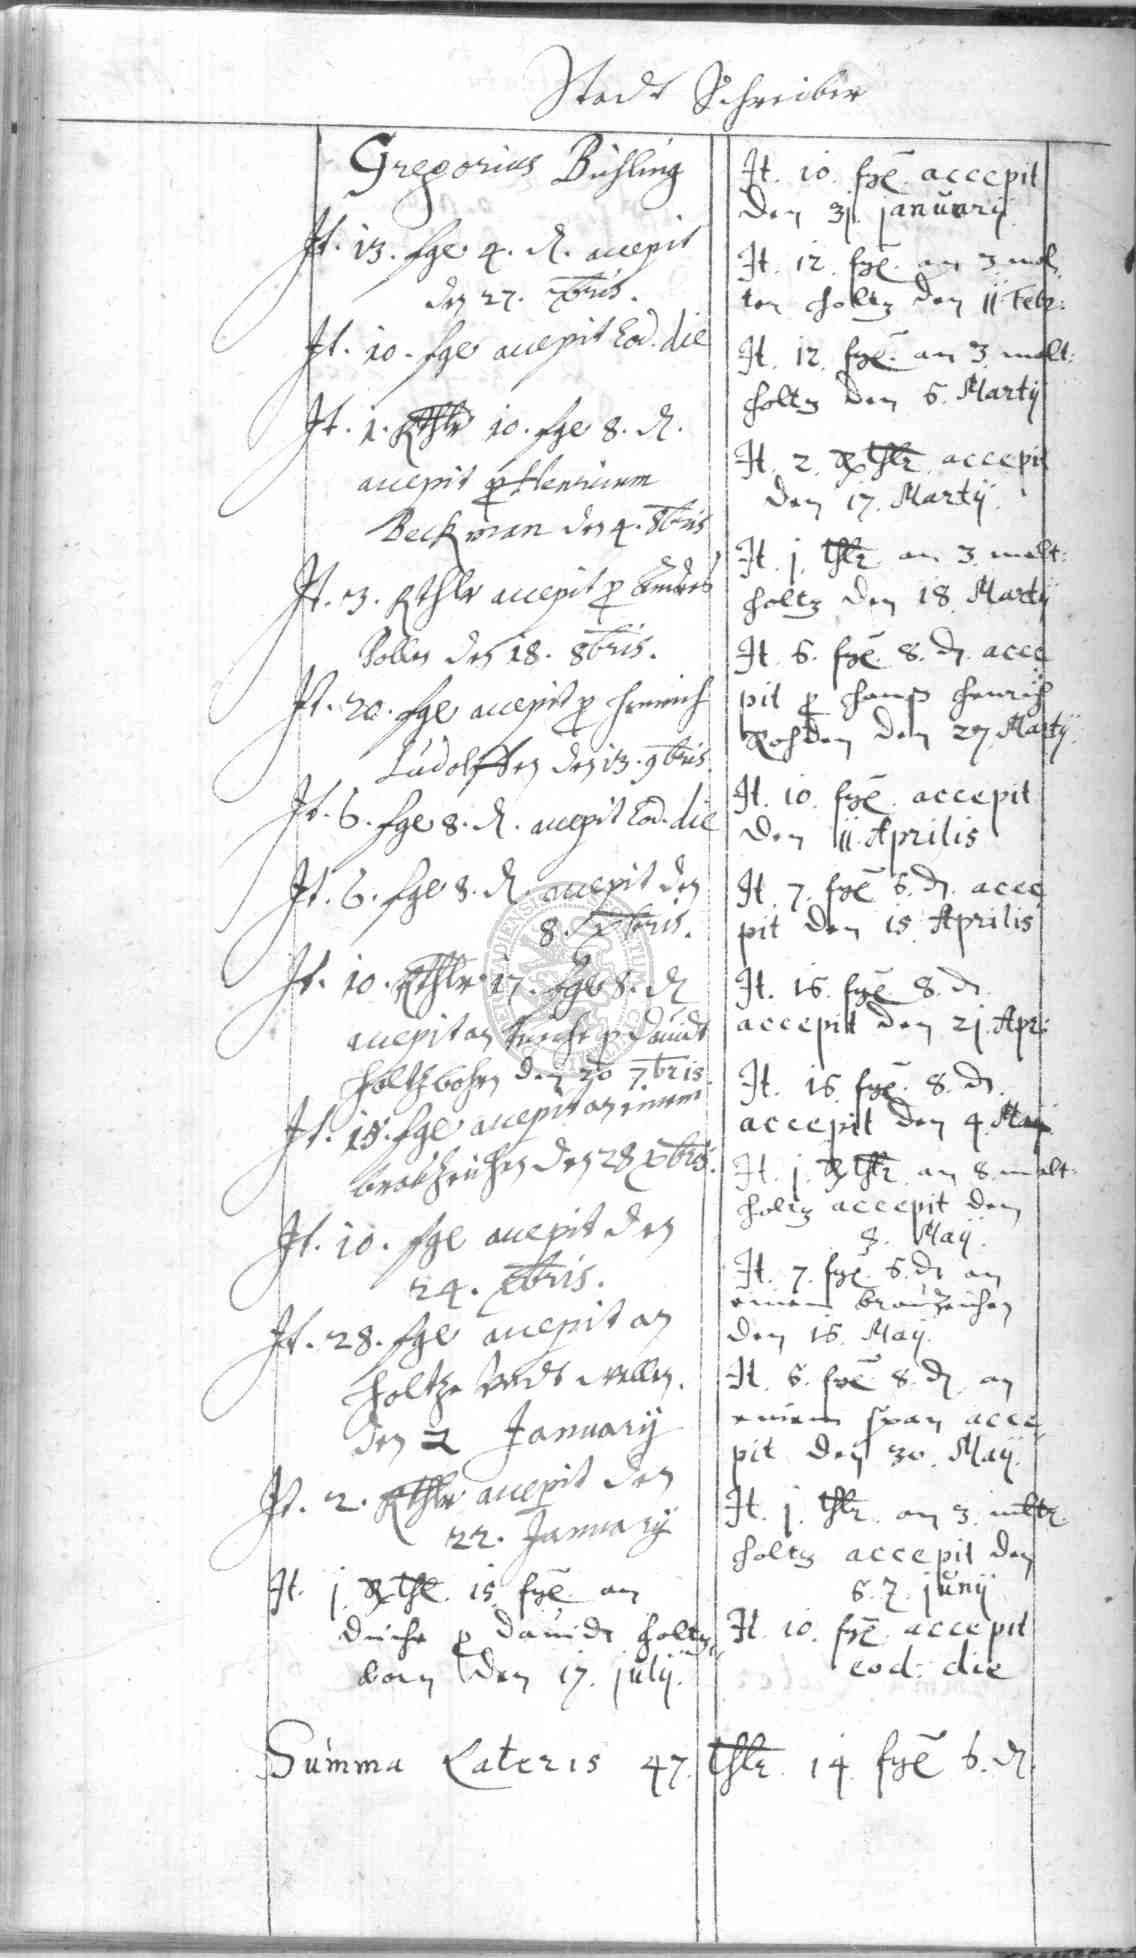 Stadt Schreiber
Gregorius Bühling
It. 13. fge 4. d. accepit
den 27. 7bris.
It. 10. fge accepit Eod. die
It. 1. Rthlr 10. fge 8. d.
accepit p Henricum
Beckman den 4. 8bris
It. 3. Rthlr accepit p
den 18. 8bris.
It. 20. fge accepit p Henrich
Ludolffen den 13. 9bris.
It. 6. fge 8. d. accepit Eod. die
It. 6. fge 8. d. accepit den
8. Xbris.
It. 10. Rthlr 17. fge 8. d
accepit an p Davidt
Holtzborn den 20 7bris
It. 15. fge accepit an einem
den 28 Xbris.
It. 10. fge accepit den
24. Xbris.
It. 28. fge accepit an
Holtze undt wellen.
den 2 January
It. 2. Rthlr accepit den
22. January
It. j Rthl. 15 fge an
p Davidt Holtz
born den 17. july.
It. 10. fge accepit
den 31. january
It. 12. fge. an 3 mal
ter Holtz den 11 Febr:
It. 12. fge. an 3. malt:
Holtz den 6. Martij
It. 2. Rthlr accepit
den 17. Martij.
It. j. thlr an 3. malt:
Holtz den 18. Martij
It. 6. fge. 8. d. acce
pit p Hanß Henrich
den 27. Martij
It. 10. fge. accepit
den 11. Aprilis
It. 7. fge 6. d. acce
pit den 15 Aprilis
It. 16. fge 8. d.
accepit den 21. Apr:
It. 16. fge. 8. d.
accepit den 4. Maij
It. j. Rthlr an 8. malt:
Holtz accepit den
8. Maij.
It. 7. fge. 6. d. an
einem brauzeichen
den 16. Maij.
It. 6. fge 8. d. an
einem span acce
pit den 30. Maij.
It. j. thlr. an 3. mltr.
Holtz accepit den
6. 7. junij
It. 10. fge. accepit
eod: die
Summa Lateris 47. thlr. 14 fge 6. d.